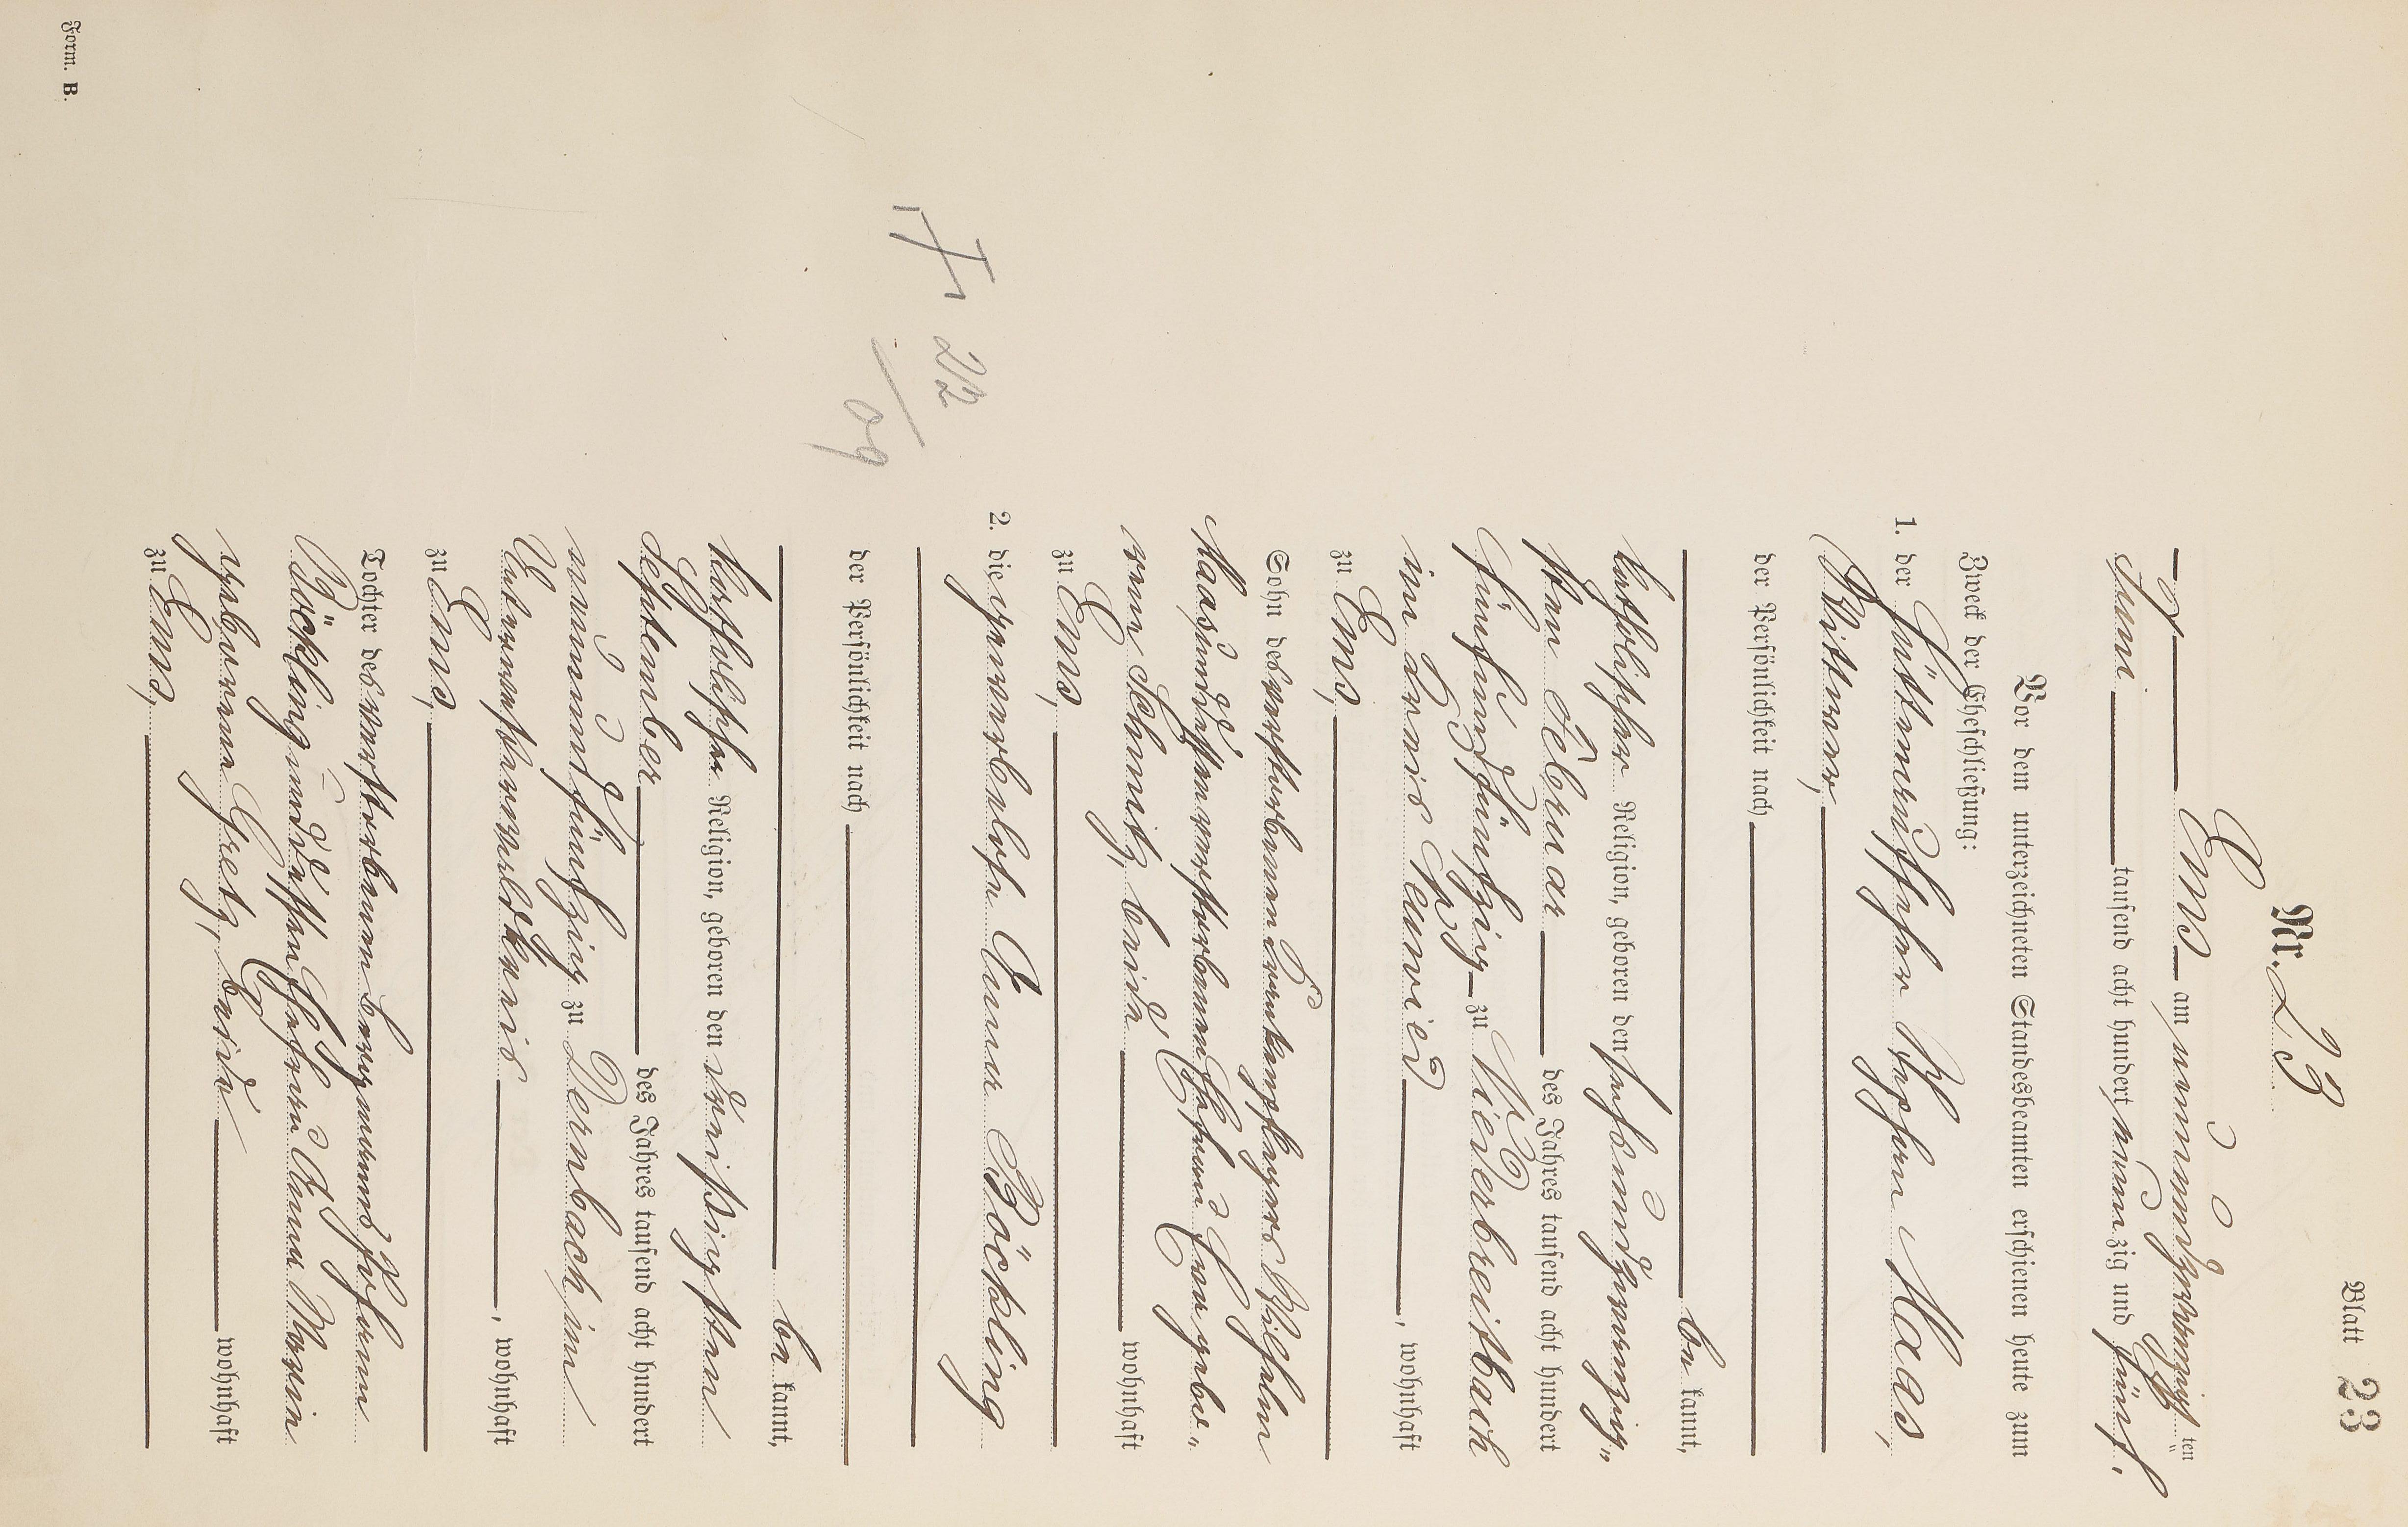 Blatt 23
Nr. 23
Ems am neunundzwanzigsten
Juni tausend acht hundert neunzig und fünf.
Vor dem unterzeichneten Standesbeamten erschienen heute zum
Zweck der Eheschließung:
1. der Hüttenaufseher Stephan Maas,
Wittwer,
der Persönlichkeit nach
be kannt,
katholischer Religion, geboren den sechsundzwanzig„
sten Februar des Jahres tausend acht hundert
fünfundfünfzig zu Niederbreitbach
im Kreis Neuwied, wohnhaft
zu Ems,
Sohn des verstorbenen Wilhelm
Maas und dessen verstorbenen Ehefrau gebo„
renen Schmitz, beide wohnhaft
zu Ems,
2. die gewerblose Anna Böckling
der Persönlichkeit nach
be kannt,
katholischer Religion, geboren den dreißigsten
September des Jahres tausend acht hundert
neunundfünfzig zu Dernbach im
Unterwesterwaldkreis, wohnhaft
zu Ems,
Tochter des verstorbenen Bergmanns Johann
Böckling und dessen Ehefrau Anna Maria
geborene Gretz, beide wohnhaft
zu Ems,
22/09
Form. B.